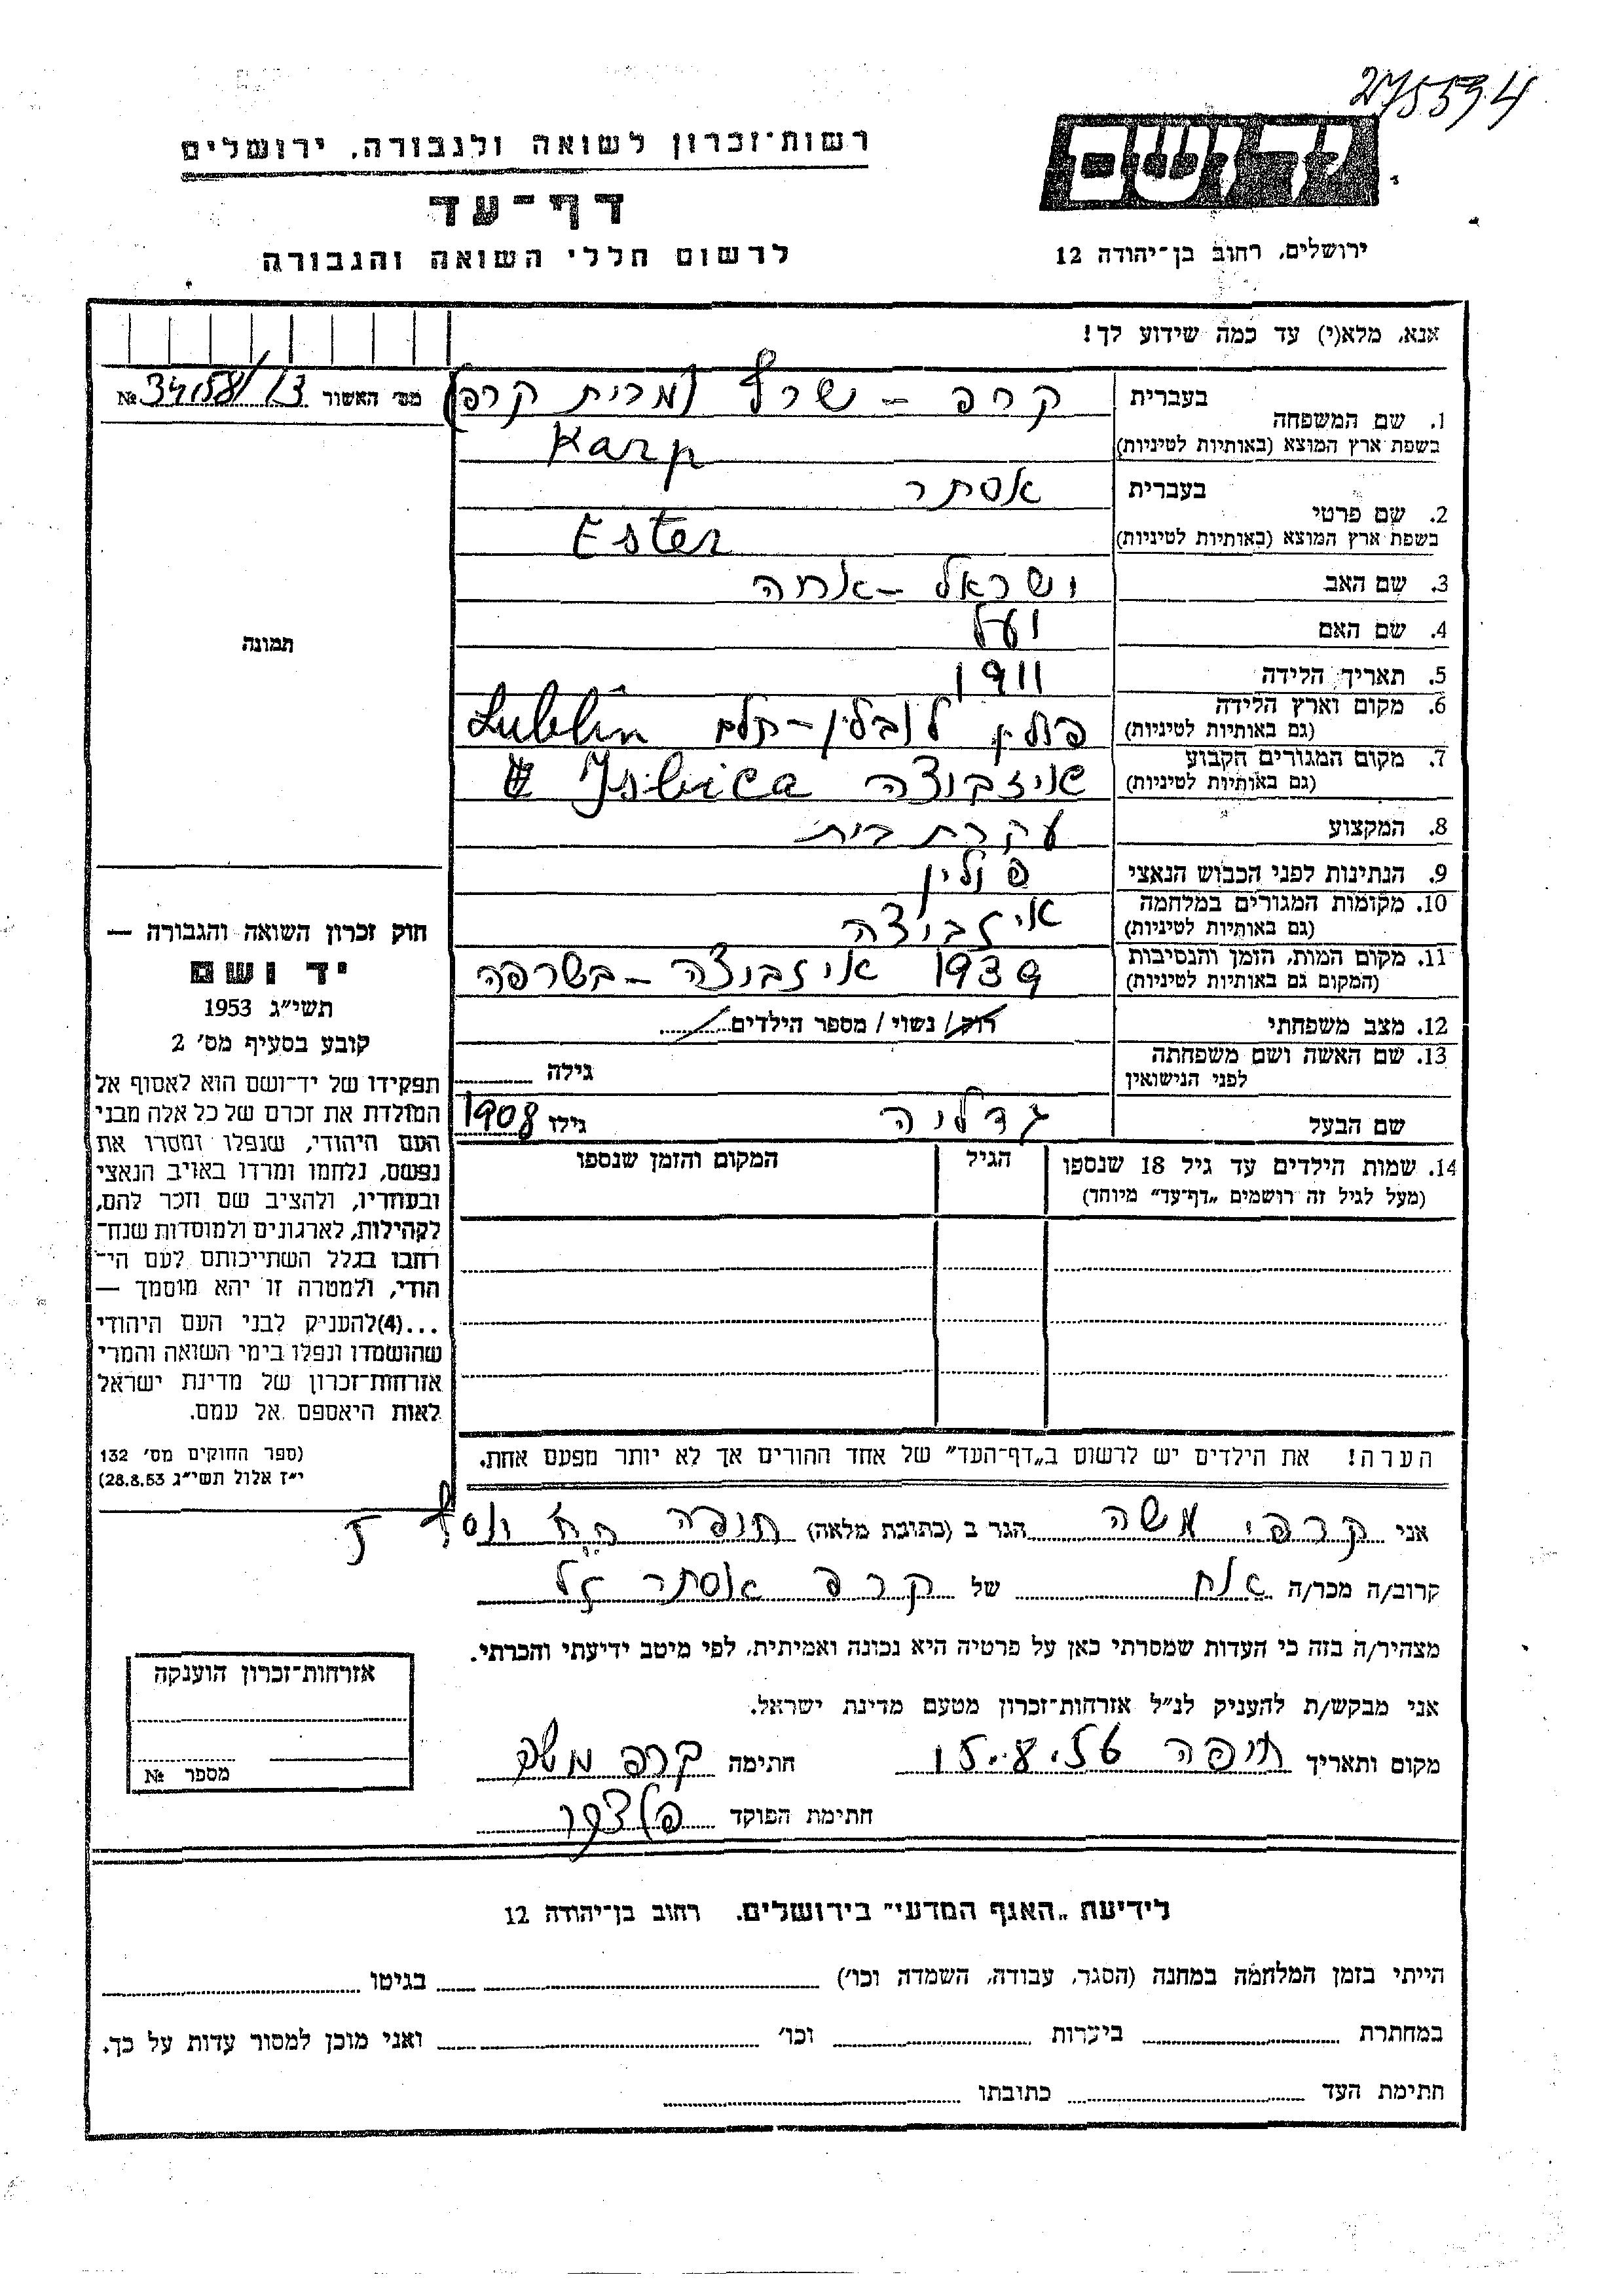 275534
רשות־זכרון לשואה ולגבורה, ירושלים
יד ושם
דף־עד
לרשום חללי השואה והגבורה
ירושלים, רחוב בן־יהודה 12
אנא, מלא(י) עד כמה שידוע לך!
מס׳ האשור № 34158/13
1. שם המשפחה
בעברית קרפ - שרף (מבית קרפ)
בשפת ארץ המוצא (באותיות לטיניות) Karp
2. שם פרטי
בעברית אסתר
בשפת ארץ המוצא (באותיות לטיניות) Ester
3. שם האב ישראל - אריה
4. שם האם יעל
5. תאריך הלידה 1911
6. מקום וארץ הלידה (גם באותיות לטיניות) פולין לובלין - Lublin
7. מקום המגורים הקבוע (גם באותיות לטיניות) איזביצה Isbica
8. המקצוע עקרת בית
9. הנתינות לפני הכבוש הנאצי פולין
10. מקומות המגורים במלחמה (גם באותיות לטיניות) איזביצה
11. מקום המות, הזמן והנסיבות (המקום גם באותיות לטיניות) 1939 איזביצה - בשרפה
12. מצב משפחתי רוק / נשוי / מספר הילדים
13. שם האשה ושם משפחתה לפני הנישואין גילה
שם הבעל גדליה גילו 1908
14. שמות הילדים עד גיל 18 שנספו (מעל לגיל זה רושמים „דף־עד” מיוחד)
הגיל
המקום והזמן שנספו
הערה! את הילדים יש לרשום ב„דף־העד” של אחד ההורים אך לא יותר מפעם אחת.
תמונה
חוק זכרון השואה והגבורה —
יד ושם
תשי״ג 1953
קובע בסעיף מס׳ 2
תפקידו של יד־ושם הוא לאסוף אל
המולדת את זכרם של כל אלה מבני
העם היהודי, שנפלו ומסרו את
נפשם, נלחמו ומרדו באויב הנאצי
ובעוזריו, ולהציב שם וזכר להם,
לקהילות, לארגונים ולמוסדות שנח־
רבו בגלל השתייכותם לעם הי־
הודי, ולמטרה זו יהא מוסמך —
...(4)להעניק לבני העם היהודי
שהושמדו ונפלו בימי השואה והמרי
אזרחות־זכרון של מדינת ישראל
לאות היאספם אל עמם.
(ספר החוקים מס׳ 132
י״ז אלול תשי״ג 28.8.53)
אני קרפ משה הגר ב (כתובת מלאה) חיפה
קרוב/ה מכר/ה אח של קרפ אסתר ז״ל
מצהיר/ה בזה כי העדות שמסרתי כאן על פרטיה היא נכונה ואמיתית, לפי מיטב ידיעתי והכרתי.
אני מבקש/ת להעניק לנ״ל אזרחות־זכרון מטעם מדינת ישראל.
מקום ותאריך חיפה 15.8.56 חתימה קרפ משה
חתימת הפוקד
אזרחות־זכרון הוענקה
מספר №
לידיעת „האגף המדעי” בירושלים. רחוב בן־יהודה 12
הייתי בזמן המלחמה במחנה (הסגר, עבודה, השמדה וכו׳) בגיטו
במחתרת ביערות וכו׳ ואני מוכן למסור עדות על כך.
חתימת העד כתובתו